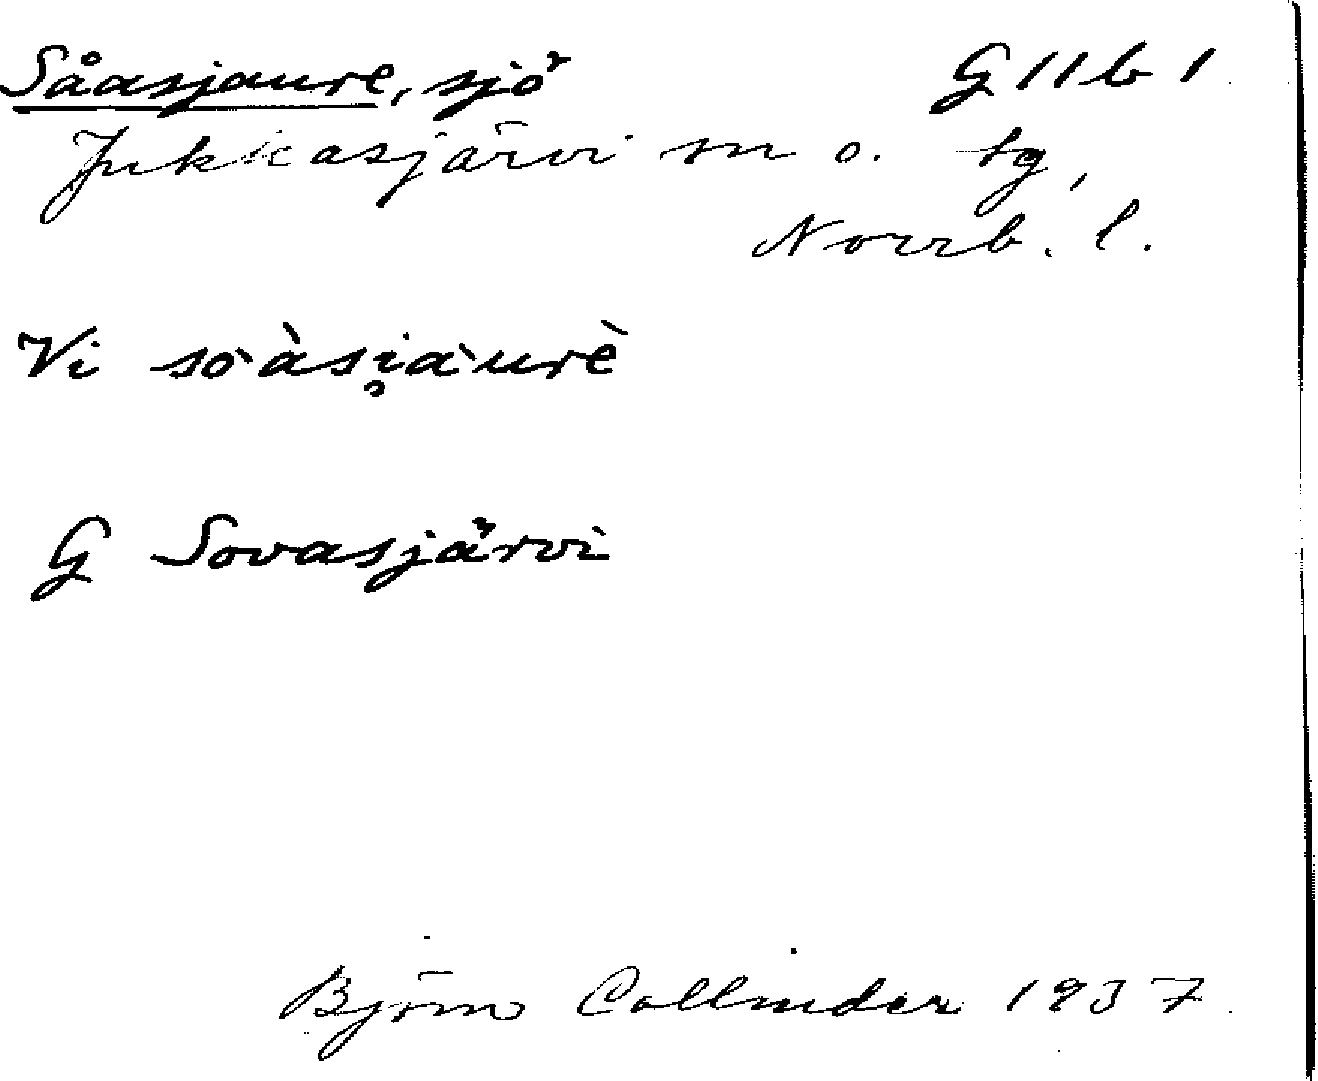 Såasjaure, sjö G 11 b 1
Jukkasjärvi sn o. tg,
Norrb. l.
Vi soàsi̥aurè
G Sovasjärvi
Björn Collinder 1937